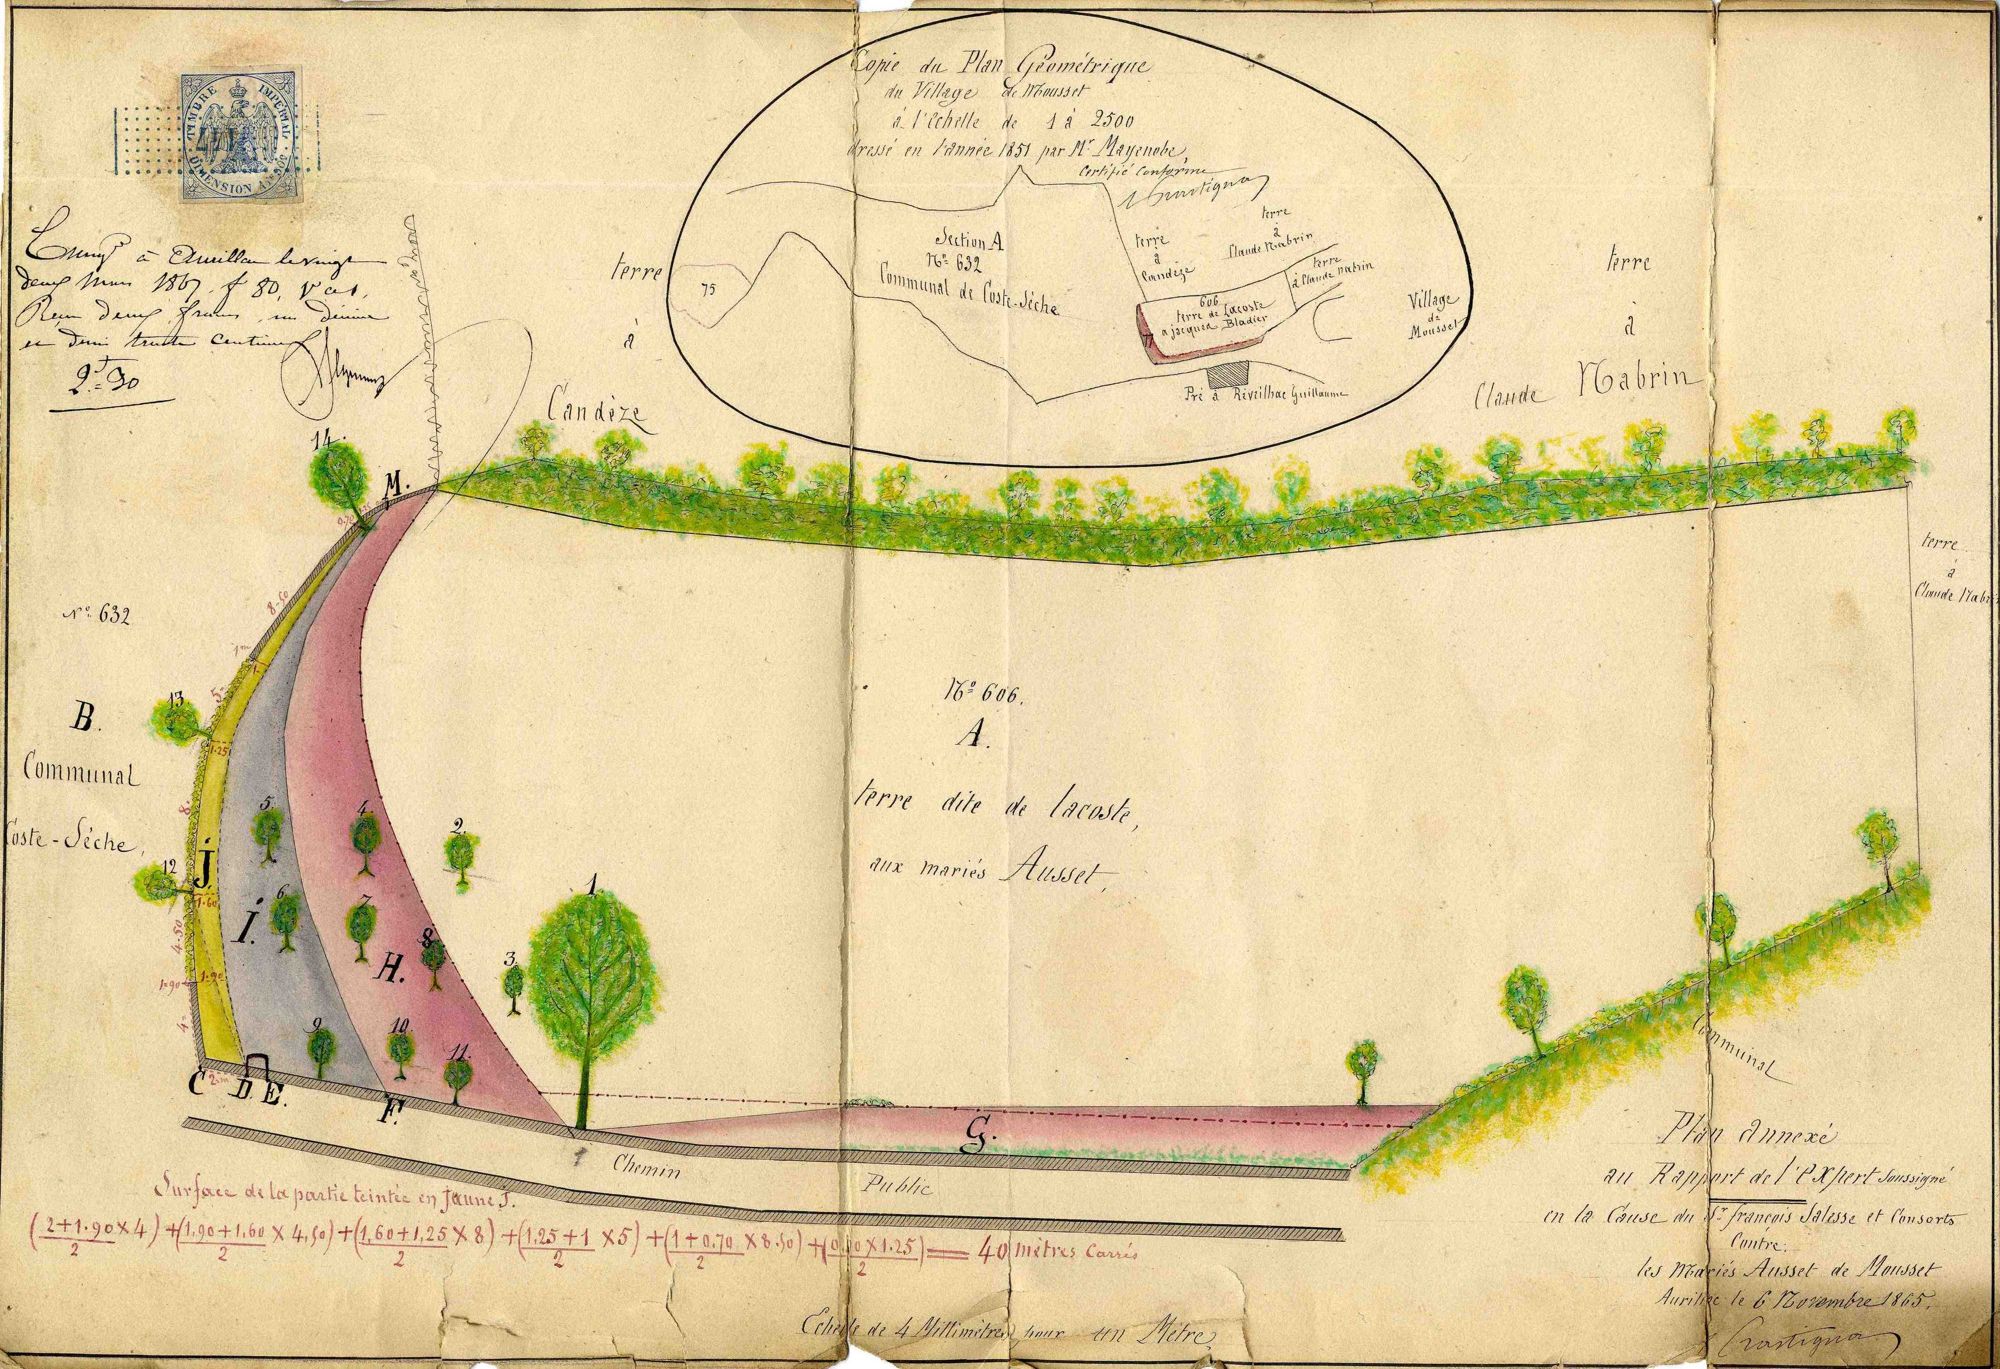 Copie du Plan Géométrique
du Village de Mousset
à l'Echelle de 1 à 2500
dressé en l'année 1851 par Mr Mayenobe,
Certifié Conforme
TIMBRE IMPERIAL
DIMENSION
à Aurillac le vingt
deux Mars 1867, f 80,
Reçu deux francs, un décime
et demi trente centimes
2f=30
terre
à
Candèze
75
Section A
No 632
Communal de Coste-Sèche
terre
à
Candèze
terre
à
Claude Nabrin
terre
à Claude Nabrin
606
terre de Lacoste
a jacques Bladier
Village
de
Mousset
Pré à Reveilhac Guillaume
terre
à
Claude Nabrin
terre
à
Claude Nab
14.
M.
0.70
8-50
1m
1.
5-
13
1.25
8.
12
1.60
4-50
1-90
1.90
4-
2.m
No 632
B.
Communal
Coste-Sèche,
J.
I.
H.
5.
4.
2.
6.
7.
8.
3.
1
9.
10.
11.
C D. E.
F.
G.
No 606.
A.
terre dite de lacoste,
aux mariés Ausset,
Communal
Chemin Public
Surface de la partie teintée en Jaune J.
(2+1.90/2 x 4) + (1,90+1,60/2 x 4,50) + (1,60+1,25/2 x 8) + (1,25+1/2 x 5) + (1+0.70/2 x 8.50) + (0,70 x 1.25/2) = 40 mètres Carrés
Echelle de 4 Millimètres pour un Mètre,
Plan annexé
au Rapport de l'Expert Soussigné
en la Cause du Sr françois Salesse et Consorts
Contre:
les Mariés Ausset de Mousset
Aurillac le 6 Novembre 1865.